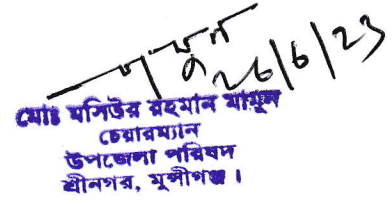 মামুন
26/6/23
মোঃ মসিউর রহমান মামুন
চেয়ারম্যান
উপজেলা পরিষদ
শ্রীনগর, মুন্সীগঞ্জ।